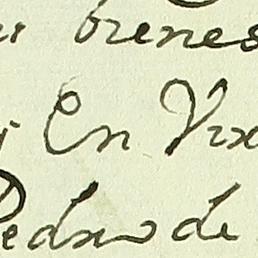 bienes
En Vir
Pedro de